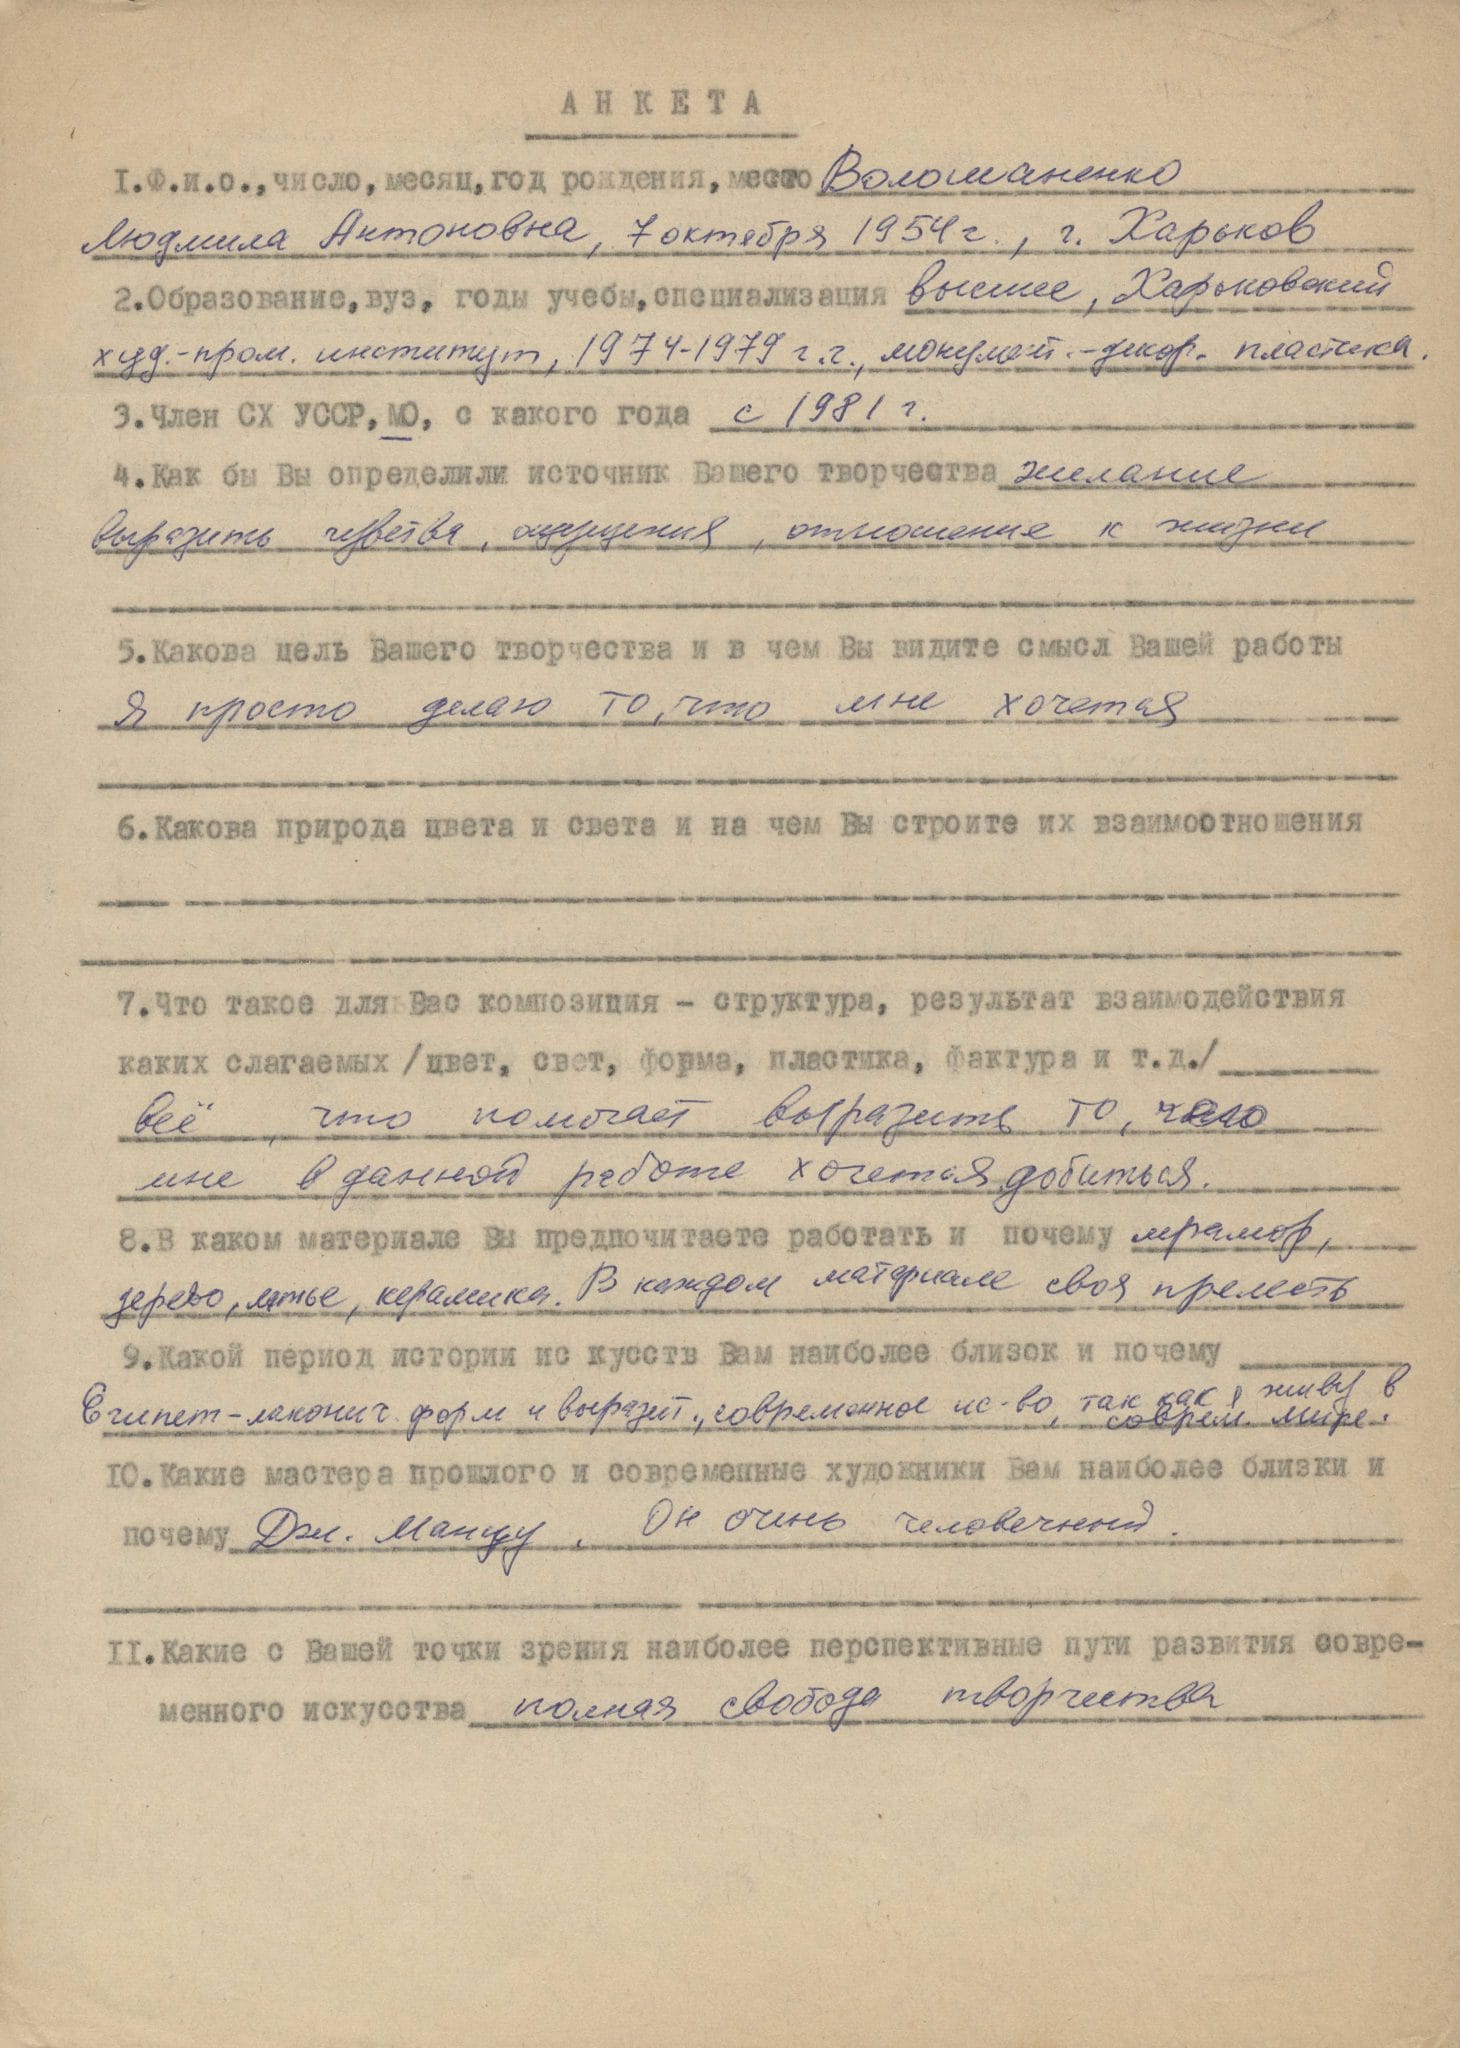 АНКЕТА
1.Ф.и.о.,число,месяц,год рождения,место Воломаненко
Людмила Антоновна, 7 октября 1954 г., г. Харьков
2.Образование,вуз, годы учебы,специализация высшее, Харьковский
худ.-пром. институт, 1974-1979 г.г., монумент.-декор. пластика.
3.Член СХ УССР,МО, с какого года с 1981 г.
4.Как бы Вы определили источник Вашего творчества желание
выразить чувства, ощущения, отношение к жизни
5.Какова цель Вашего творчества и в чем Вы видите смысл Вашей работы
Я просто делаю то, что мне хочется
6.Какова природа цвета и света и на чем Вы строите их взаимоотношения
7.Что такое для Вас композиция - структура, результат взаимодействия
каких слагаемых /цвет, свет, форма, пластика, фактура и т.д./
всё, что помогает выразить то, чего
мне в данной работе хочется добиться.
8.В каком материале Вы предпочитаете работать и почему мрамор,
дерево, литье, керамика. В каждом материале своя прелесть
9.Какой период истории ис кусств Вам наиболее близок и почему
Египет-лаконич. форм и выразит., современное ис-во, так как я живу в
соврем. мире.
10.Какие мастера прошлого и современные художники Вам наиболее близки и
почему Дж. Манцу. Он очень человечный.
11.Какие с Вашей точки зрения наиболее перспективные пути развития совре-
менного искусства полная свобода творчества